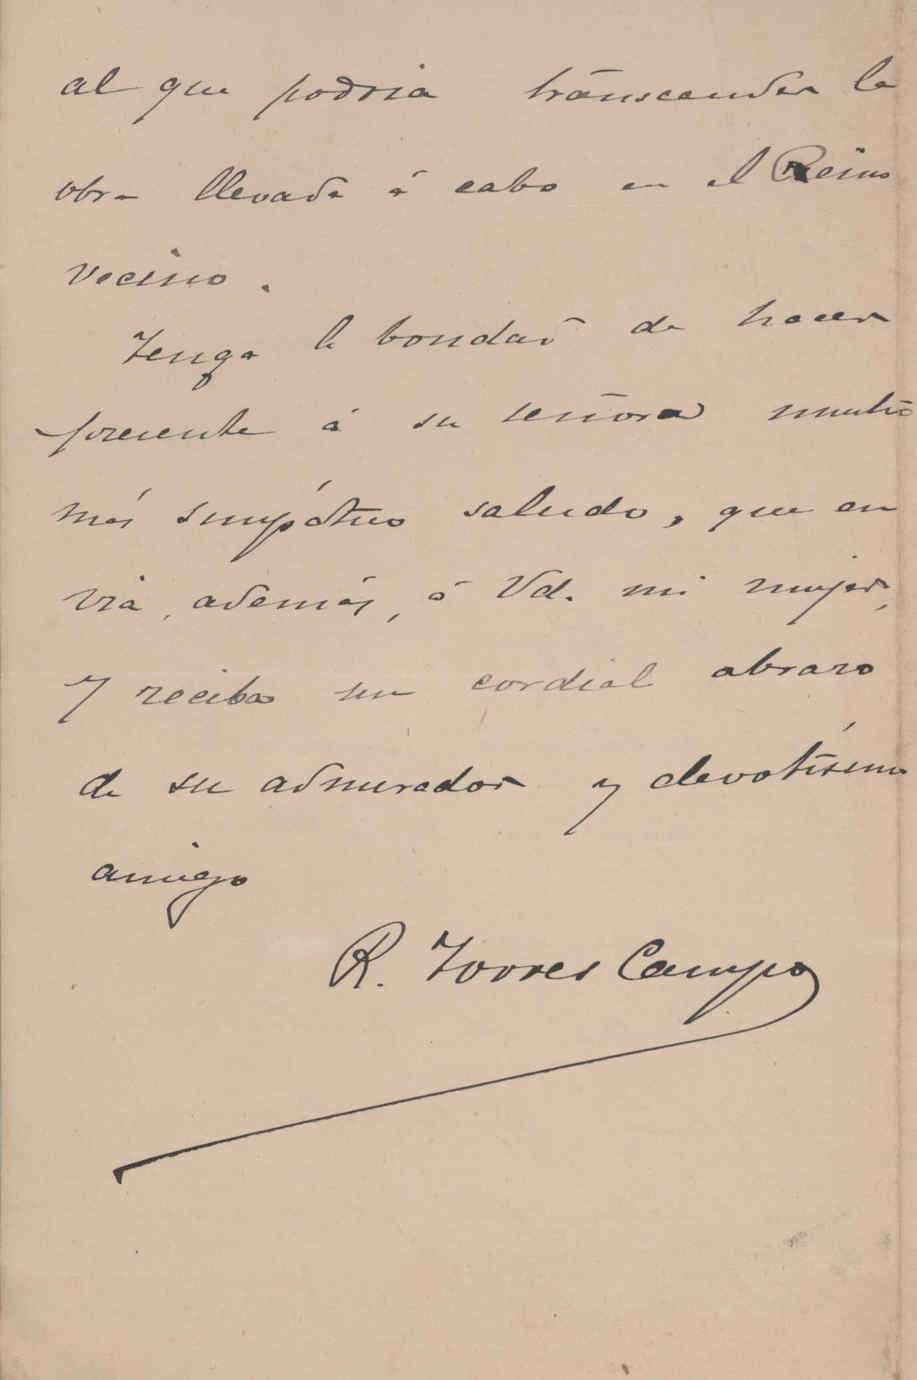 al que podria transcender la
obra llevada á cabo en el Reino
vecino.
Tenga la bondad de hacer
presente á su señora nuestro
más simpático saludo, que en
via, además, á Vd. mi mujer,
y reciba un cordial abrazo
de su admirador y devotísimo
amigo
R. Torres Campo